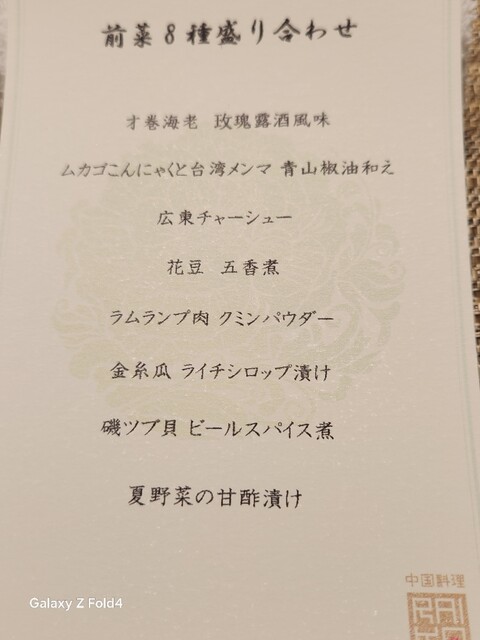 前菜8種盛り合わせ
才巻海老 玫瑰露酒風味
ムカゴこんにゃくと台湾メンマ 青山椒油和え
広東チャーシュー
花豆 五香煮
ラムランプ肉 クミンパウダー
金糸瓜 ライチシロップ漬け
磯ツブ貝 ビールスパイス煮
夏野菜の甘酢漬け
中国料理
Galaxy Z Fold4